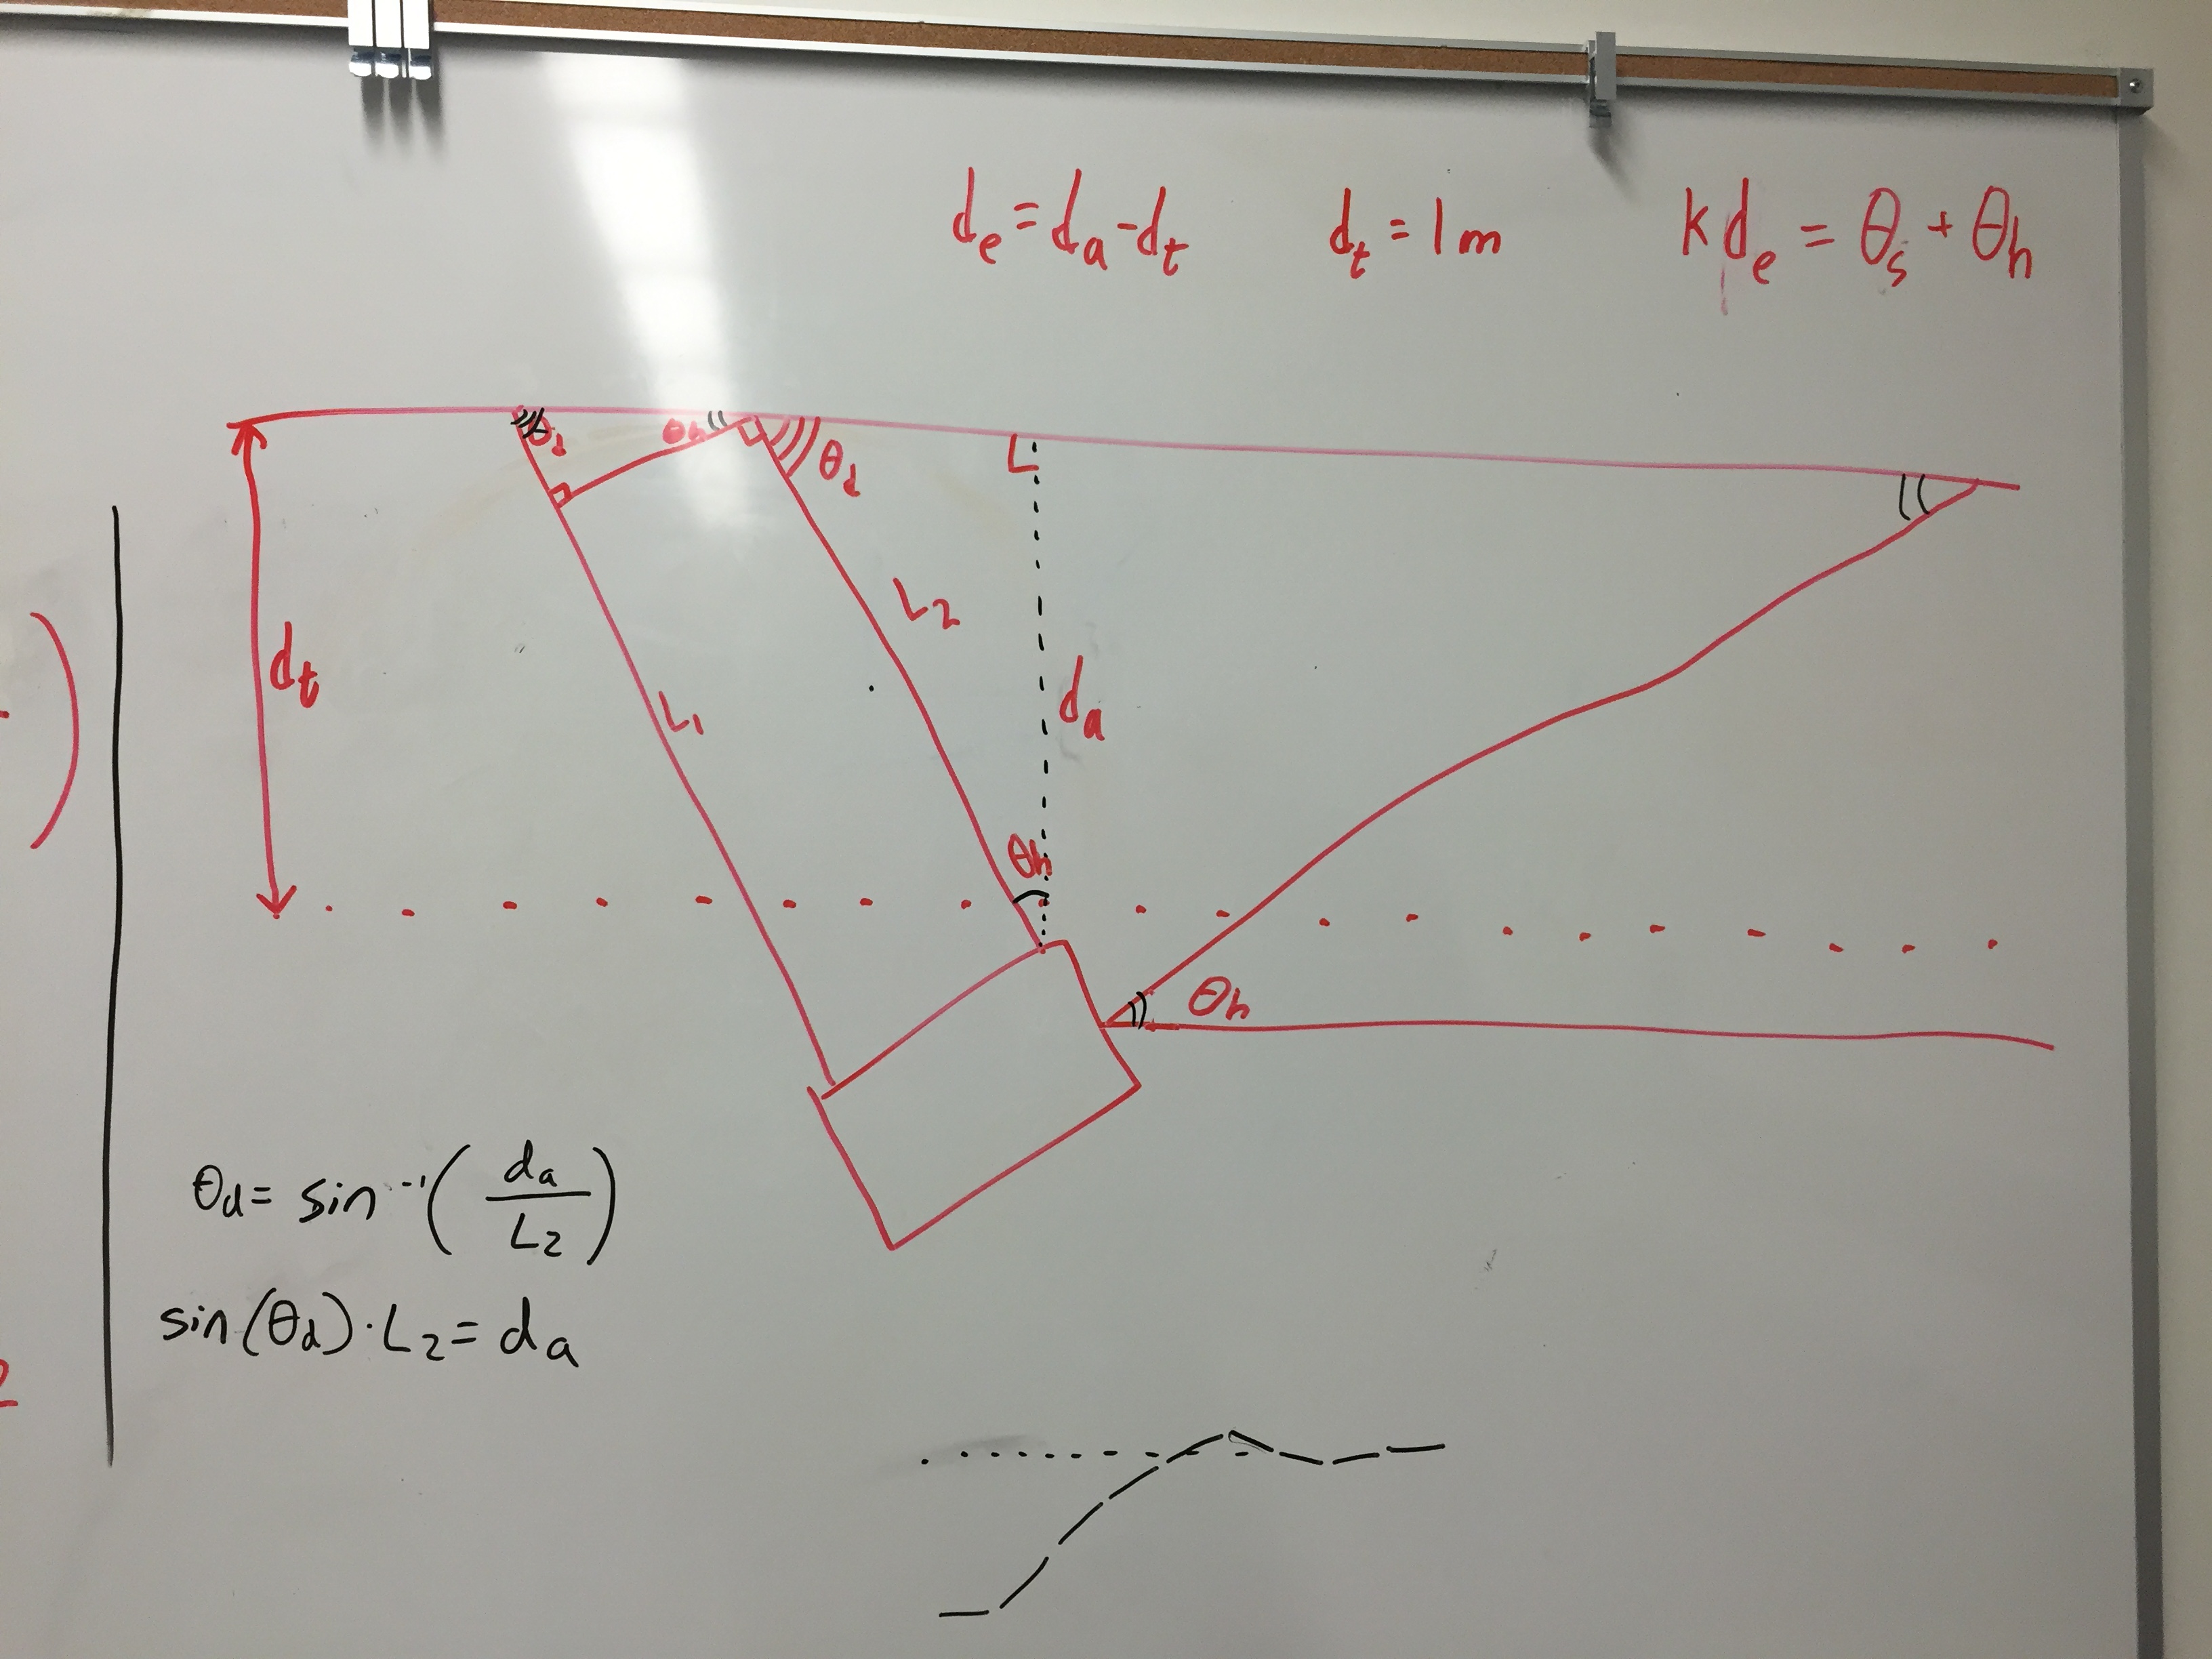 dₑ = dₐ - dₜ   dₜ = 1 m   kdₑ = θₛ + θₕ
θd θh θd
L₂
dt
L₁
da
θh
θh
θd = sin⁻¹(da/L₂)
sin(θd)·L₂ = da
2